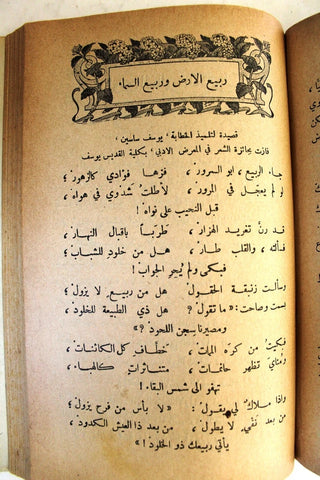 ربيع الارض وربيع السماء
قصيدة لتلميذ الخطابة ' يوسف ساسين '
فازت بجائزة الشعر في المعرض الادبي ' بكلية القديس يوسف
جاء الربيع ، ابو السرور ، فزها فؤادي كالزهور ،
لو لم يعجل في المرور ، لأطلت شدوي في هواه ،
قبل النحيب على نواه !
قد رن تغريد الهزار ، طرباً باقبال النهار ،
فسألته ، والقلب طار : « هل من خلود للشباب ؟ »
فبكى ولم يحر الجواب !
وسألت زنبقة الحقول : « هل من ربيع لا يزول ؟ »
بسمت وصاحت : « ما تقول ؟ هل ذي الطبيعة للخلود ،
ومصيرنا سجن اللحود ؟ »
فبكيت من كره الممات ، خطاف كل الكائنات ،
ومناي تظهر حائمات ، متناثرات كالهباء ،
تهفو الى شمس البقاء !
واذا ملاك لي يقول : « لا بأس من فرح يزول ؛
من بعد نفي لا يطول ، من بعد ذا العيش الكدود ،
يأتي ربيعك ذو الخلود ! »